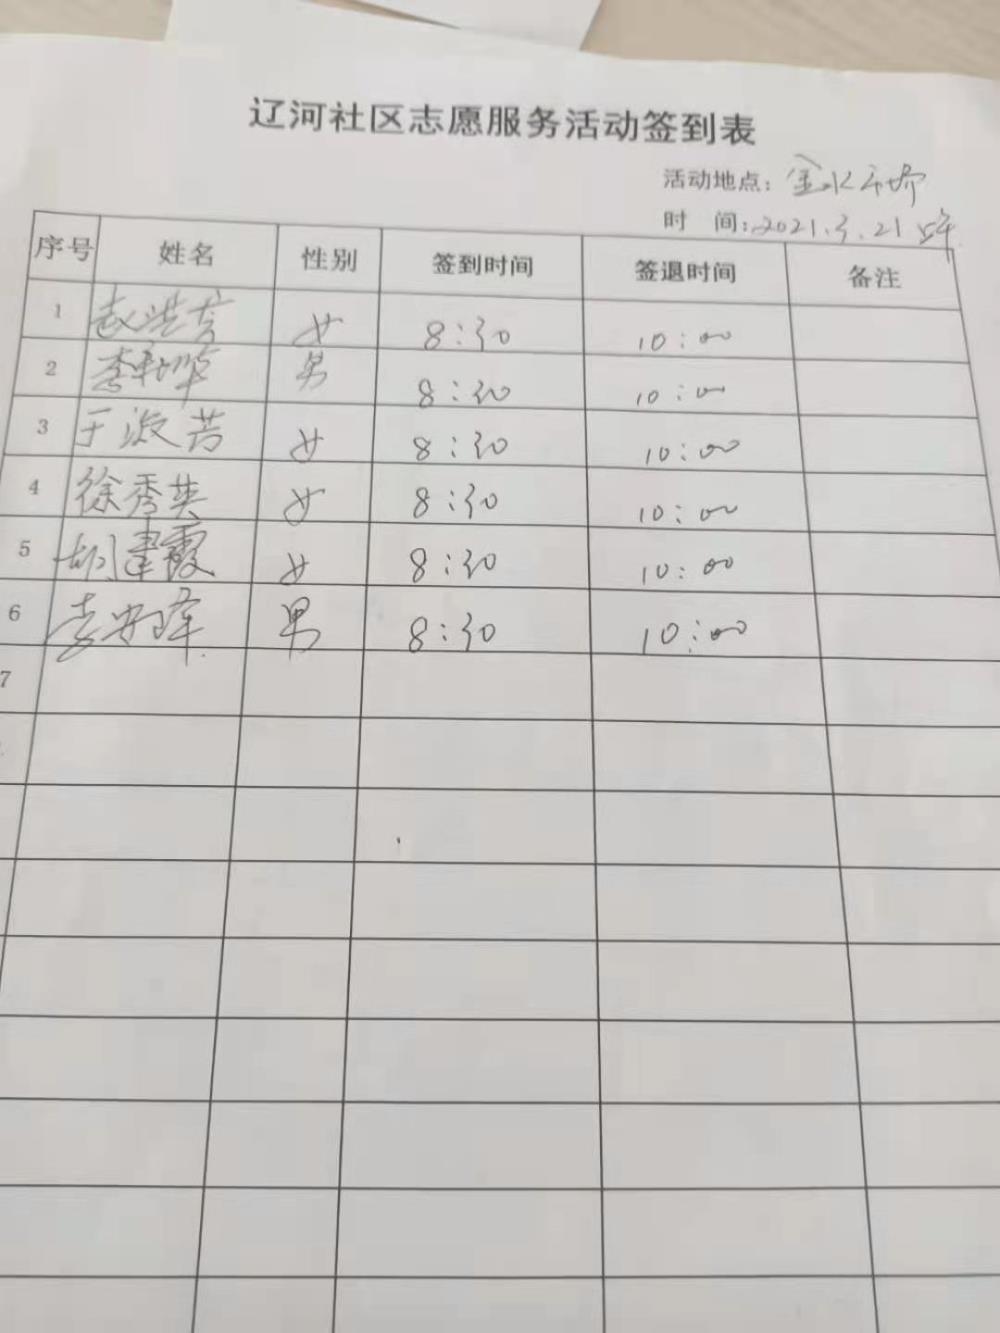 辽河社区志愿服务活动签到表
活动地点：金水
时 间：2021.3.21
序号 姓名 性别 签到时间 签退时间 备注
1 赵洪芳 女 8:30 10:00
2 李 华 男 8:30 10:00
3 于淑芳 女 8:30 10:00
4 徐秀英 女 8:30 10:00
5 胡建霞 女 8:30 10:00
6 李 男 8:30 10:00
7